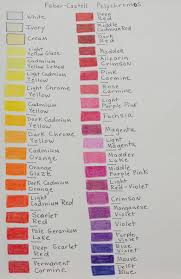 Faber-Castell Polychromos
White
Ivory
Cream
Light
Yellow Glaze
Cadmium
Yellow Lemon
Light Cadmium
Yellow
Light Chrome
Yellow
Cadmium
Yellow
Dark Chrome
Yellow
Cadmium
Orange
Orange
Glaze
Dark Cadmium
Orange
Light
Cadmium Red
Scarlet
Red
Pale Geranium
Lake
Deep Scarlet
Red
Permanent
Carmine
Deep
Red
Middle
Cadmium Red
Dark
Red
Madder
Alizarin
Crimson
Pink
Carmine
Rose
Carmine
Light
Purple Pink
Fuchsia
Magenta
Light
Magenta
Madder
Lake
Middle
Purple Pink
Light
Red-Violet
Crimson
Manganese
Violet
Violet
Purple
Violet
Blue
Violet